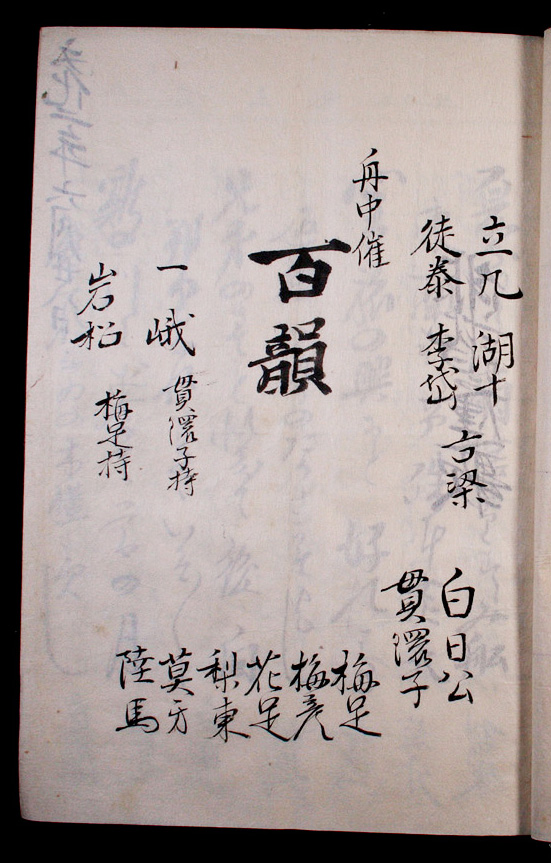 立几 湖十 言梁
徒泰 李岱
白日公
貫環子
舟中催
百韻
一峨 貫環子持
岩松 梅足持
梅足
梅彦
花足
梨東
莫牙
陸馬